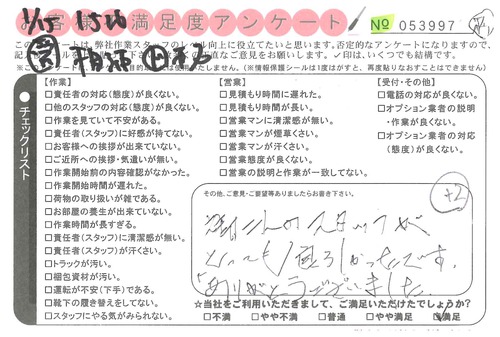 お客様満足度アンケート
№ 053997
このアンケートは、弊社作業スタッフのレベル向上に役立てたいと思います。否定的なアンケートになりますので、
お願いします。✓印は、いくつでも結構です。
(※情報保護シールは1度はがすと、再度貼りなおすことはできません)
チェックリスト
【作業】
□責任者の対応(態度)が良くない。
□他のスタッフの対応(態度)が良くない。
□作業を見ていて不安がある。
□責任者(スタッフ)に好感が持てない。
□お客様への挨拶が出来ていない。
□ご近所への挨拶・気遣いが無い。
□作業開始前の内容確認がなかった。
□作業開始時間が遅れた。
□荷物の取り扱いが雑である。
□お部屋の養生が出来ていない。
□作業時間が長すぎる。
□責任者(スタッフ)に清潔感が無い。
□責任者(スタッフ)が汗くさい。
□トラックが汚い。
□梱包資材が汚い。
□運転が不安(下手)である。
□靴下の履き替えをしてない。
□スタッフにやる気がみられない。
【営業】
□見積もり時間に遅れた。
□見積もり時間が長い。
□営業マンに清潔感が無い。
□営業マンが煙草くさい。
□営業マンが汗くさい。
□営業態度が良くない。
□営業の説明と作業が一致してない。
【受付・その他】
□電話の対応が良くない。
□オプション業者の説明
・作業が良くない。
□オプション業者の対応
(態度)が良くない。
その他、ご意見・ご要望等ありましたらお書き下さい。
+2
スタッフが
とっても
ありがとうございました。
☆当社をご利用いただきまして、ご満足いただけたでしょうか?
□不満 □やや不満 □普通 □やや満足 ☑満足